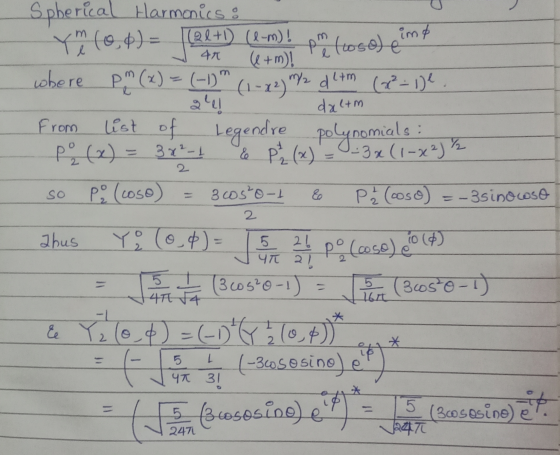 Spherical Harmonics:
Y_l^m(θ,φ) = √((2l+1)/4π (l-m)!/(l+m)!) P_l^m(cosθ) e^{imφ}
where P_l^m(x) = (-1)^m/(2^l l!) (1-x²)^{m/2} d^{l+m}/dx^{l+m} (x²-1)^l.
From list of Legendre polynomials:
P_2^0(x) = (3x²-1)/2 & P_2^1(x) = -3x(1-x²)^{1/2}
so P_2^0(cosθ) = (3cos²θ-1)/2 & P_2^1(cosθ) = -3sinθcosθ
Thus Y_2^0(θ,φ) = √(5/4π 2!/2!) P_2^0(cosθ) e^{i0(φ)}
= √(5/4π) 1/√4 (3cos²θ-1) = √(5/16π) (3cos²θ-1)
& Y_2^{-1}(θ,φ) = (-1)^1 (Y_2^1(θ,φ))*
= (-√(5/4π 1/3!) (-3cosθsinθ) e^{iφ})*
= (√(5/24π) (3cosθsinθ) e^{iφ})* = √(5/24π) (3cosθsinθ) e^{-iφ}.